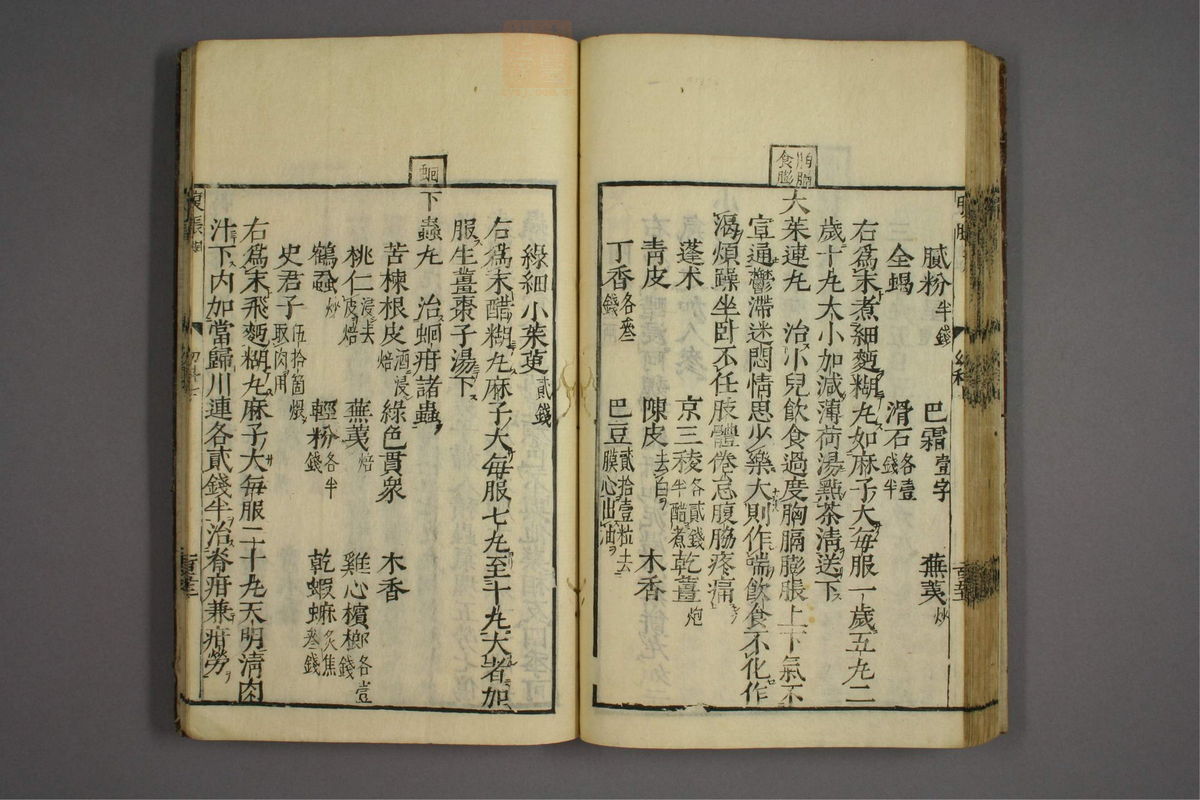 胸膈
食膨
膩粉半錢 巴霜壹字 蕪荑炒
全蝎 滑石各壹錢半
右爲末煮細麪糊丸如麻子大每服一歲五丸二
歲十丸大小加減薄荷湯㸃茶清送下
大茱連丸 治小兒飲食過度胸膈膨脹上下氣不
宣通鬱滯迷悶情思少樂大則作喘飲食不化作
渴煩躁坐卧不任肢體倦怠腹脇疼痛
蓬朮 京三稜各貳錢半醋煮 乾薑炮
青皮 陳皮去白 木香
丁香各叁錢 巴豆貳拾壹粒去膜心出油
綠細小茱萸貳錢
右爲末醋糊丸麻子大每服七丸至十丸大者加
服生薑棗子湯下
蛔
下蟲丸 治蛔疳諸蟲
苦楝根皮酒浸焙 綠色貫衆 木香
桃仁浸去皮焙 蕪荑焙 雞心檳榔各壹錢
鶴蝨炒 輕粉各半錢 乾蝦蟆炙焦叁錢
史君子伍拾箇煨取肉用
右爲末飛麪糊丸麻子大每服二十丸天明清肉
汁下内加當歸川連各貳錢半治脊疳兼疳勞